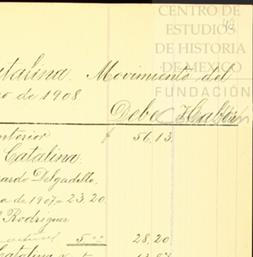 CENTRO DE
ESTUDIOS
DE HISTORIA
DE MEXICO
FUNDACIÓN
atalina. Movimiento del
o de 1908.
Debe Haber
anterior $ 56,13
Catalina.
ardo Delgadillo,
a de 1907= 23,20
Rodriguez
5 28,20
Catalina